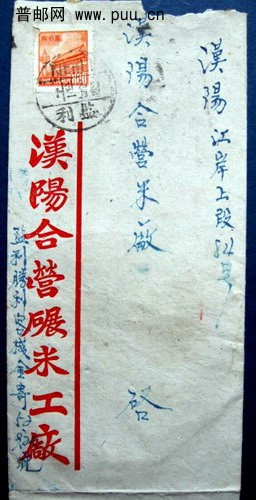 普邮网 www.puu.cn
漢陽江岸上段52号
漢陽合營米廠
啓
漢陽合營碾米工廠
監利勝利
監利
800